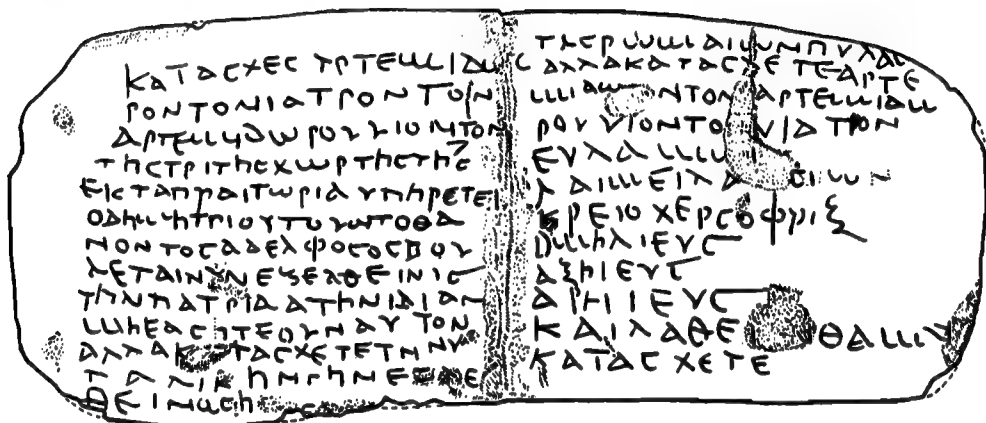 ΚΑΤΑϹΧΕϹ ΤΡΤΕΜΙΔΩ
ΡΟΝΤΟΝΙΑΤΡΟΝΤΟΝ
ΑΡΤΕΜΗΔΩΡΟΥΥΙΟΝΤΟΝ
ΤΗϹΤΡΙΤΗϹΧΩΡΤΗϹΤΗϹ
ΕΙϹΤΑΠΡΑΙΤΩΡΙΑΥΠΗΡΕΤΕΙ
ΟΔΗΜΗΤΡΙΟΥΤΟΥΩΤΟΘΑ
ΝΟΝΤΟϹΑΔΕΛΦΟϹΟϹΒΟΥ
ΛΕΤΑΙΝΥΝΕΞΕΛΘΕΙΝΙϹ
ΤΗΝΠΑΤΡΙΔΑΤΗΝΙΔΙΑΝ
ΜΗΕΑϹΗΤΕΟΥΝΑΥΤΟΝ
ΑΛΛΑΚΑΤΑϹΧΕΤΕΤΗΝΥ
ΤΑΛΙΚΗΝΓΗΝ
ΘΕΙΝ
ΤΗϹΡΩΜΑΙΩΝΠΥΛΑϹ
ΑΛΛΑΚΑΤΑϹΧΕΤΕΑΡΤΕ
ΜΙΔΩ ΝΤΟΝ ΑΡΤΕΜΙΔΩ
ΡΟΥΥΙΟΝΤΟ ΝΙΑΤΙΟΝ
ΕΥΛΑΜΩ
ΛΑΙΜΕΙΛΑ ϹΙΩΝ
ΚΡΕΙΟΧΕΡϹΟΦΡΙΞ
ΩΜΗΛΙΕΥϹ
ΔΞΗΙΕΥϹ
ΑΡΗΙΕΥϹ
ΚΑΙΛΑΘΕ ΘΑΜΙΥ
ΚΑΤΑϹΧΕΤΕ